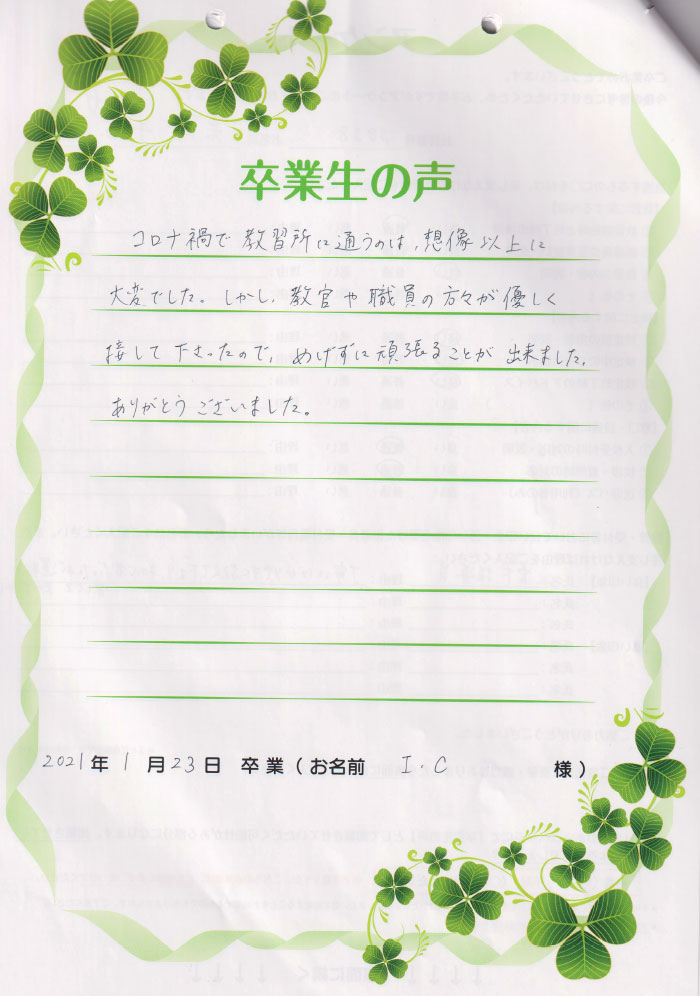 卒業生の声
コロナ禍で教習所に通うのは、想像以上に
大変でした。しかし、教官や職員の方々が優しく
接して下さったので、めげずに頑張ることが出来ました。
ありがとうございました。
2021年 1月23日 卒業(お名前 I・C 様)